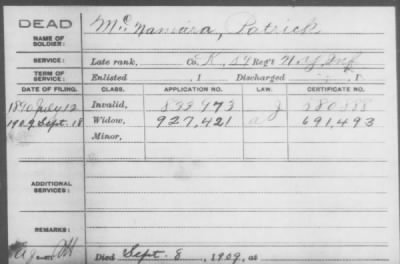 DEAD
NAME OF SOLDIER: McNamara, Patrick
SERVICE: Late rank, Co. K, Reg't N.Y. Inf
TERM OF SERVICE: Enlisted , 1 Discharged , 1
DATE OF FILING. CLASS. APPLICATION NO. LAW. CERTIFICATE NO.
1890 July 12 Invalid, 833473 580388
1909 Sept. 18 Widow, 927,421 691,493
Minor,
ADDITIONAL SERVICES:
REMARKS:
Died Sept. 8, 1909, at